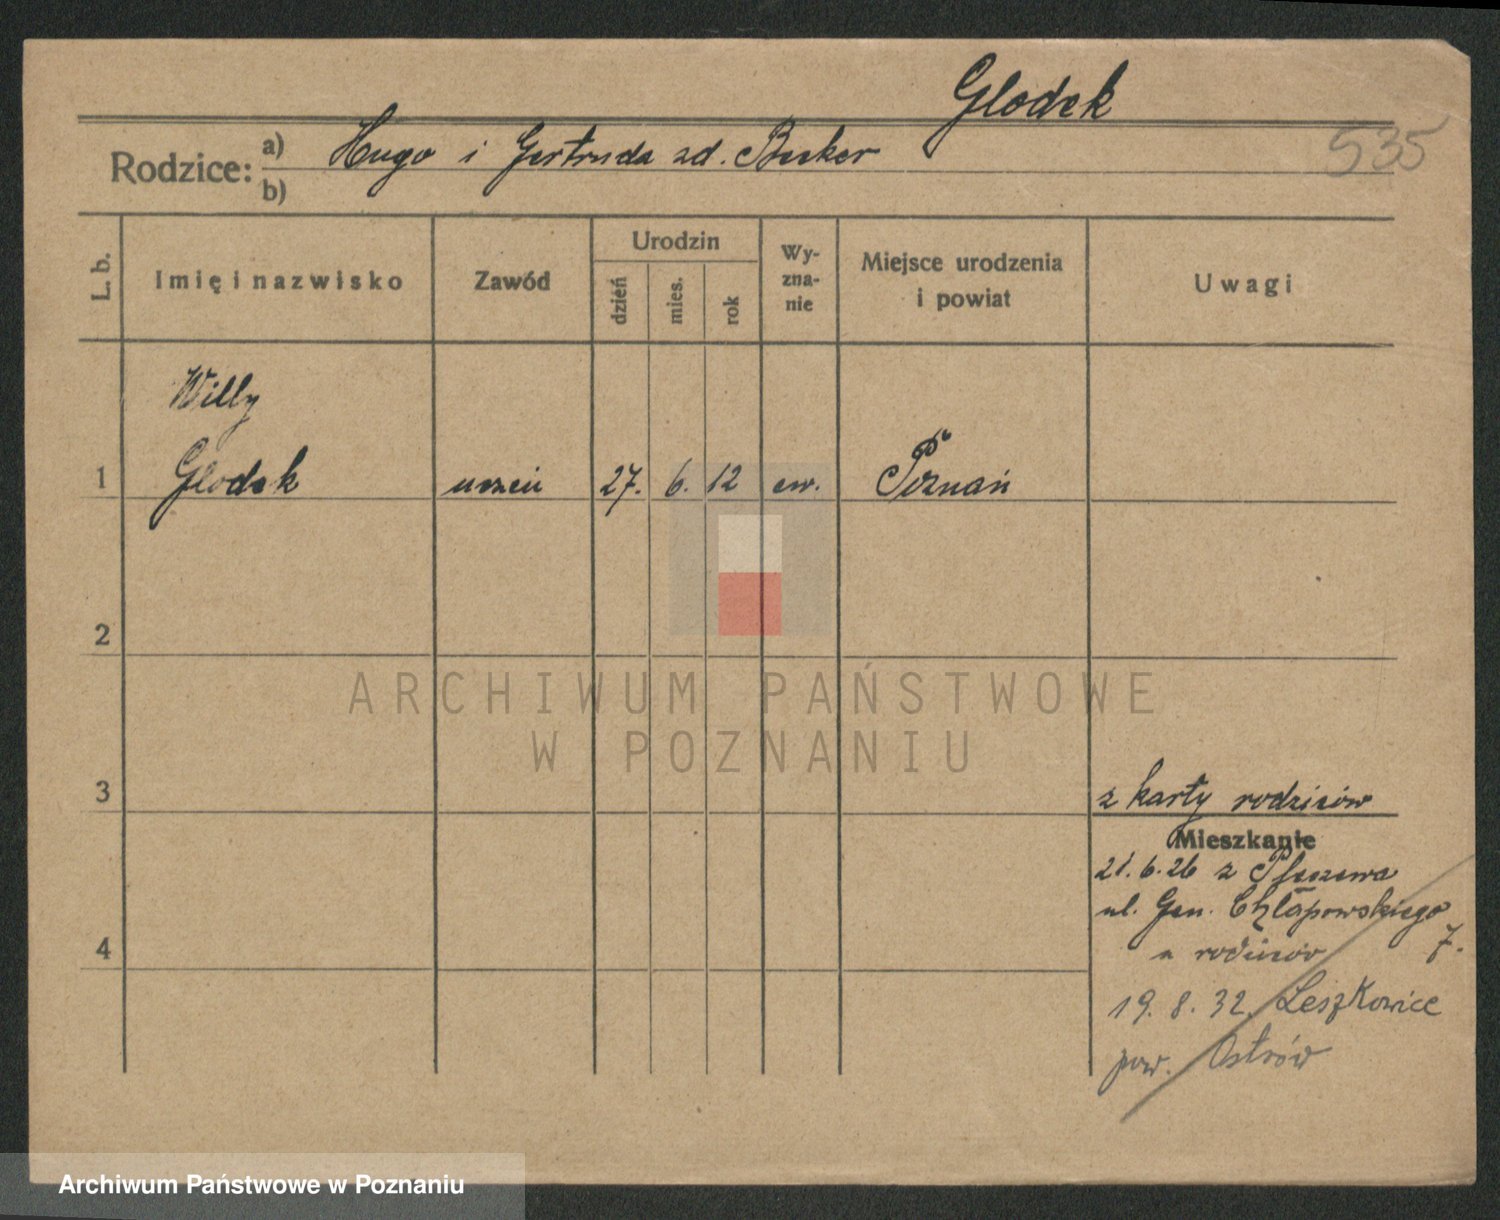 Glodek
535
Rodzice: a) Hugo i Gertruda zd. Becker
b)
L. b. Imię i nazwisko Zawód Urodzin dzień mies. rok Wy-zna-nie Miejsce urodzenia i powiat Uwagi
Willy
1 Glodek uczeń 27. 6. 12 ew. Poznań
2
ARCHIWUM PAŃSTWOWE
W POZNANIU
3 z karty rodziców
Mieszkanie
21.6.26 z Pleszewa
ul. Gen. Chłapowskiego
4 u rodziców 7.
19. 8. 32. Leszkowice
pow. Ostrów
Archiwum Państwowe w Poznaniu